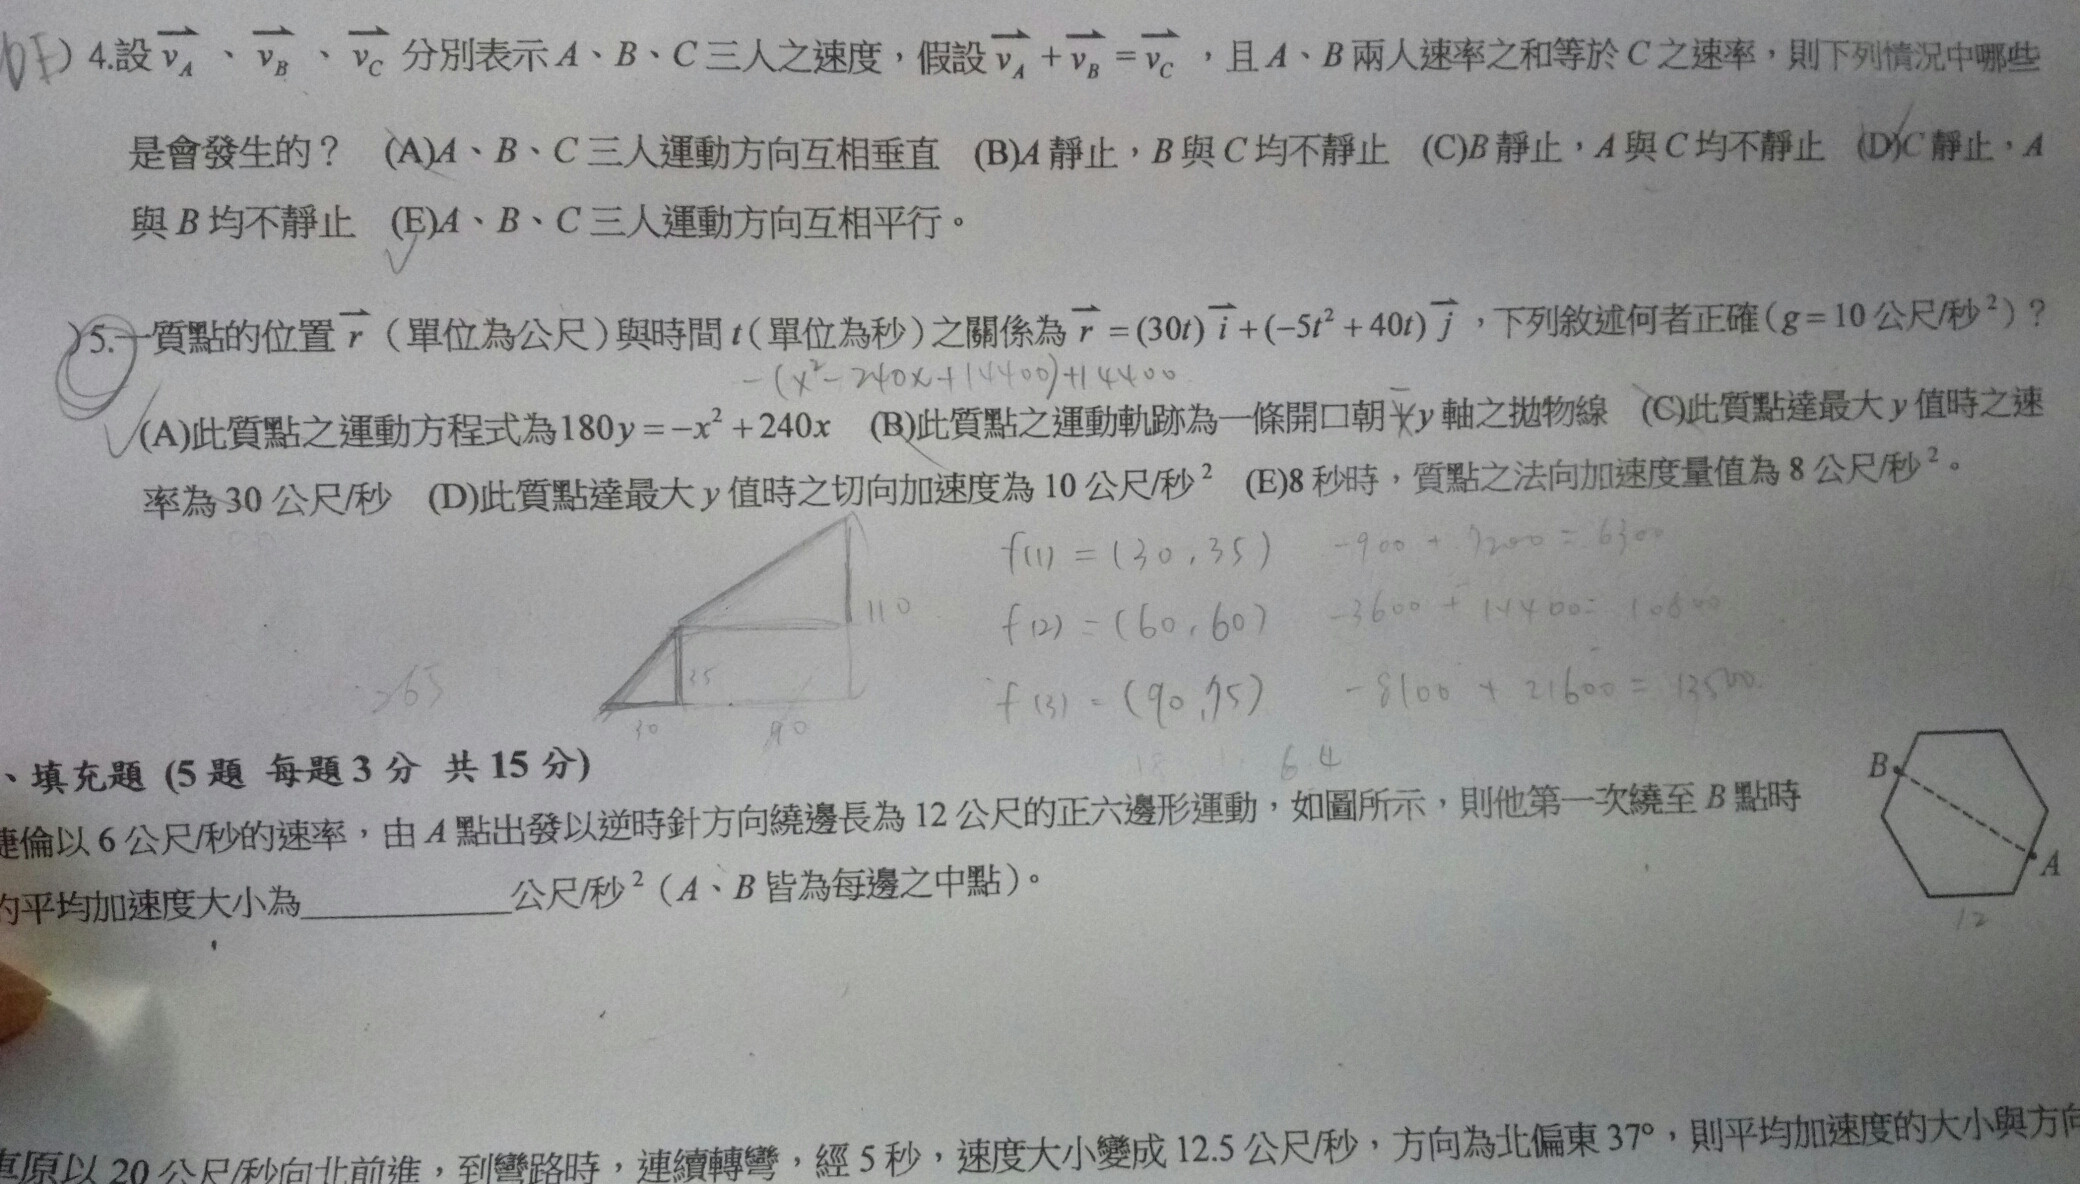 4.設 v_A、v_B、v_C 分別表示 A、B、C 三人之速度，假設 v_A + v_B = v_C，且 A、B 兩人速率之和等於 C 之速率，則下列情況中哪些
是會發生的？ (A)A、B、C 三人運動方向互相垂直 (B)A 靜止，B 與 C 均不靜止 (C)B 靜止，A 與 C 均不靜止 (D)C 靜止，A
與 B 均不靜止 (E)A、B、C 三人運動方向互相平行。
5.一質點的位置 r（單位為公尺）與時間 t（單位為秒）之關係為 r = (30t) i + (−5t² + 40t) j，下列敘述何者正確（g = 10 公尺/秒²）？
−(x²−240x+14400)+14400
(A)此質點之運動方程式為180y = −x² + 240x (B)此質點之運動軌跡為一條開口朝 y 軸之拋物線 (C)此質點達最大 y 值時之速
率為 30 公尺/秒 (D)此質點達最大 y 值時之切向加速度為 10 公尺/秒² (E)8 秒時，質點之法向加速度量值為 8 公尺/秒²。
f(1) = (30, 35) −900 + 7200 = 6300
110
f(2) = (60, 60) −3600 + 14400 = 10800
265 35
f(3) = (90, 75) −8100 + 21600 = 13500
30 90
64
、填充題 (5 題 每題 3 分 共 15 分)
B
倫以 6 公尺/秒的速率，由 A 點出發以逆時針方向繞邊長為 12 公尺的正六邊形運動，如圖所示，則他第一次繞至 B 點時
A
平均加速度大小為 公尺/秒²（A、B 皆為每邊之中點）。
12
原以 20 公尺/秒向北前進，到彎路時，連續轉彎，經 5 秒，速度大小變成 12.5 公尺/秒，方向為北偏東 37°，則平均加速度的大小與方向